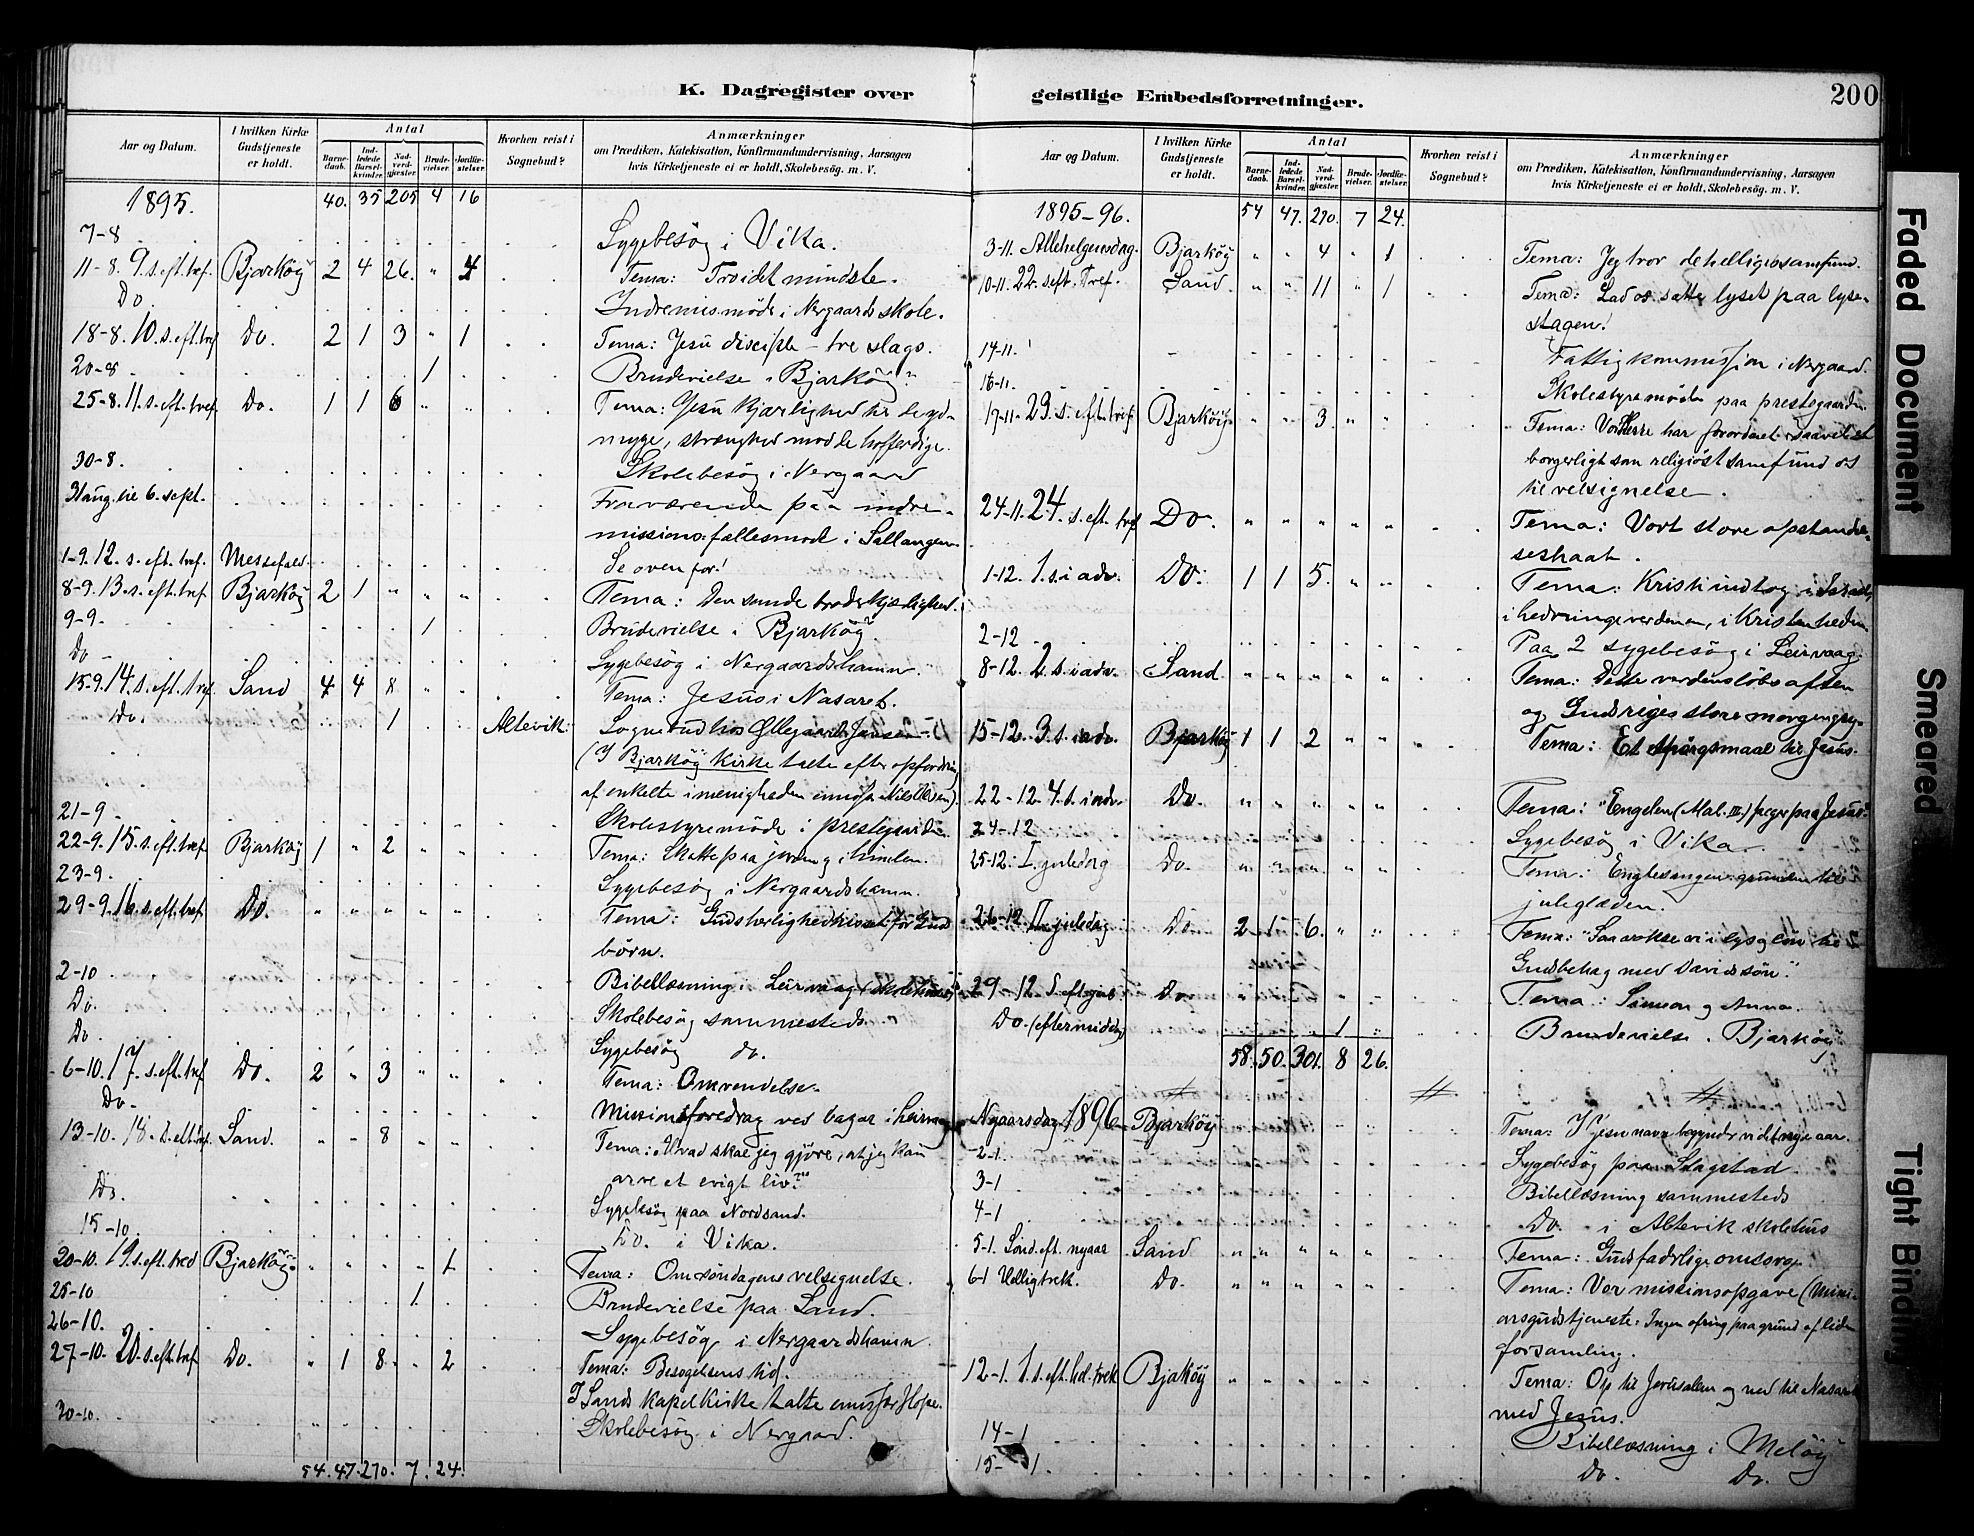 K. Dagregister over
Aar og Datum. I hvilken Kirke Gudstjeneste er holdt. Antal Barnedaab. Indledede Barselkvinder. Nadverdgjester. Brudevielser. Jordfæstelser. Hvorhen reist i Sognebud? Anmærkninger om Prædiken, Katekisation, Konfirmandundervisning, Aarsagen hvis Kirketjeneste ei er holdt, Skolebesög. m. V.
1895. 40. 35 205 4 16
7-8 Sygebesög i Vika.
11-8. 9. s. eft. tref. Bjarköy 2 4 26. " 4 Tema: Tro i det mindste.
Do Indremis. möde i Nergaards skole.
18-8. 10. s. eft. tref Do. 2 1 3 " 1 Tema: Jesu disciple - tre slags.
20-8 1 Brudevielse i Bjarköy.
25-8. 11. s. eft. tref. Do. 1 1 6 " " Tema: Jesu kjærlighed til de yd-
myge, strænghed mod de hoffærdige.
30-8. Skolebesög i Nergaard
31 aug. til 6. sept. Fraværende paa indre-
missions. fællesmöde i Sallangen.
1-9. 12. s. eft. tref. Messefald. Se ovenfor!
8-9. 13. s. eft. tref Bjarköy 2 1 " " " Tema: Den sande broderkjærlighed.
9-9. 1 Brudevielse i Bjarköy.
Do Sygebesög i Nergaardshamn.
15-9. 14. s. eft. tref Sand 4 4 8 " " Tema: Jesus i Nasaret.
Do. 1 Altevik. Sognebud hos Ollegaard Jensen
(I Bjarköy kirke talte efter opfordring
af enkelte i menigheden emisær Nils Olsen).
21-9 Skolestyremöde i prestegaarden
22-9. 15. s. eft. tref Bjarköy 1 " 2 " " Tema: Skatte paa jorden og i himlen.
23-9. Sygebesög i Nergaardshamn.
29-9. 16. s. eft. tref. Do. " " " " " Tema: Guds herlighed for Guds
börn.
2-10 Bibellæsning i Leirvaag
Do. Skolebesög sammesteds.
Do. Sygebesög do.
6-10. 17. s. eft. tref Do. 2 " 3 " " Tema: Omvendelse.
Do. Missionsforedrag ved bazar i Leirvaag
13-10. 18. s. eft. tref. Sand. " " 8 " " Tema: "Hvad skal jeg gjöre, at jeg kan
arve et evigt liv?"
Do. Sygebesög paa Nordsand.
15-10. Do. i Vika.
20-10. 19. s. eft. tred Bjarköy. " " " " 1 Tema: Om söndagens velsignelse.
25-10 1 Brudevielse paa Sand.
26-10. Sygebesög i Nergaardshamn
27-10. 20. s. eft. tref Do. " 1 8 " 2 Tema: Besögelsens tid.
I Sands kapelkirke talte emisær Hope.
30-10. Skolebesög i Nergaard.
54. 47. 270. 7. 24.
geistlige Embedsforretninger. 200
Aar og Datum. I hvilken Kirke Gudstjeneste er holdt. Antal Barnedaab. Indledede Barselkvinder. Nadverdgjester. Brudevielser. Jordfæstelser. Hvorhen reist i Sognebud? Anmærkninger om Prædiken, Katekisation, Konfirmandundervisning, Aarsagen hvis Kirketjeneste ei er holdt, Skolebesög. m. V.
1895-96. 54 47. 270. 7 24.
3-11. Allehelgensdag. Bjarköy " " 4 " 1 Tema: Jeg tror de helliges samfund.
10-11. 22. s. eft. Tref. Sand. " " 11 " 1 Tema: Lad os sætte lyset paa lyse-
stagen!
14-11. Fattigkommission i Nergaard.
16-11. Skolestyremöde paa prestegaarden
17-11. 23. s. eft. tref Bjarköy. " " 3 " " Tema: Vorherre har forordnet saavel et
borgerligt som religiöst samfund os
til velsignelse.
24-11. 24. s. eft. tref Do. " " " " " Tema: Vort store opstandel-
seshaab.
1-12. 1. s. i adv. Do. 1 1 5. " " Tema: Kristi indtog i Israel,
i hedningeverdenen, i Kristenheden.
2-12 Paa 2 sygebesög i Leirvaag
8-12. 2. s. i adv. Sand. " " " " " Tema: Dette verdenslöbs aften
og Gudsriges store morgengry.
15-12. 3. s. i adv. Bjarköy 1 1 2 " " Tema: Et spörgsmaal til Jesus.
22-12. 4. s. i adv. Do. " " " " " Tema: "Engelen (Mal. III.) peger paa Jesus."
24-12 Sygebesög i Vika.
25-12. I. juledag Do. " " " " " Tema: Englesangen grunden til
juleglæden.
26-12 II. juledag Do 2 1 6. " " Tema: "Saa vokse vi i lys og lön til
Guds behag med Davids sön."
29-12. S. eft. jul Do. " " " " " Tema: Simeon og Anna.
Do. (eftermiddag) 1 Brudevielse. Bjarköy
58. 50. 301. 8 26.
Nyaarsdag 1896 Bjarköy Tema: I Jesu navn begynder vi det nye aar.
2-1. Sygebesög paa Slagstad
3-1 Bibellæsning sammesteds
4-1 Do. i Altevik skolehus
5-1. Sönd. eft. nyaar Sand " " " " " Tema: Guds faderlige omsorg.
6-1 Helligtrek. Do. " " " " " Tema: Vor missionsopgave (Missi-
onsgudstjeneste. Ingen ofring paa grund af liden
forsamling.
12-1. 1. s. eft. hel. trek Bjaköy " " " " " Tema: Op til Jerusalem og ned til Nasaret
med Jesus.
14-1 Bibellæsning i Melöy
15-1. Do. Do.
Faded Document
Smeared
Tight Binding